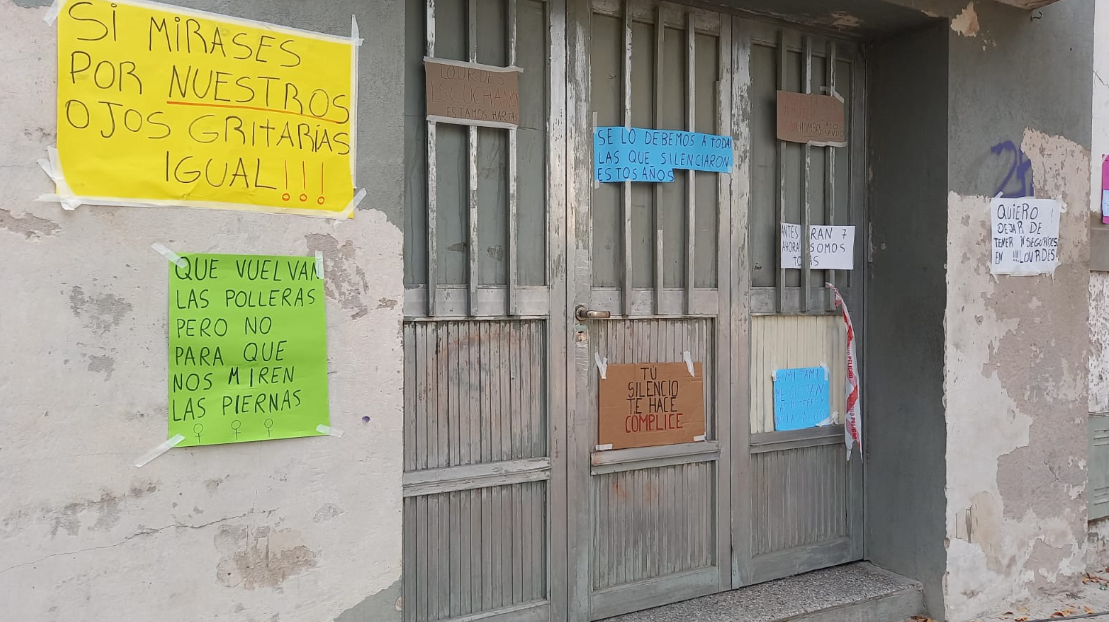 SI MIRASES
POR NUESTROS
OJOS GRITARÍAS
IGUAL!!!
QUE VUELVAN
LAS POLLERAS
PERO NO
PARA QUE
NOS MIREN
LAS PIERNAS
ESTAMOS HARTAS
SE LO DEBEMOS A TODA
LAS QUE SILENCIARON
ESTOS AÑOS
ANTES RAN 7
AHORA SOMOS
TU
SILENCIO
TE HACE
COMPLICE
QUIERO
DEJAR DE
EN !!! LOURDES!